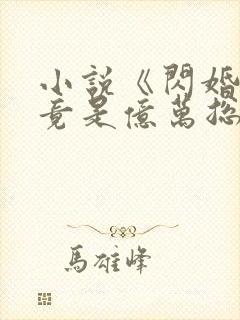 小說《閃婚
竟是億萬總
馬雄峰